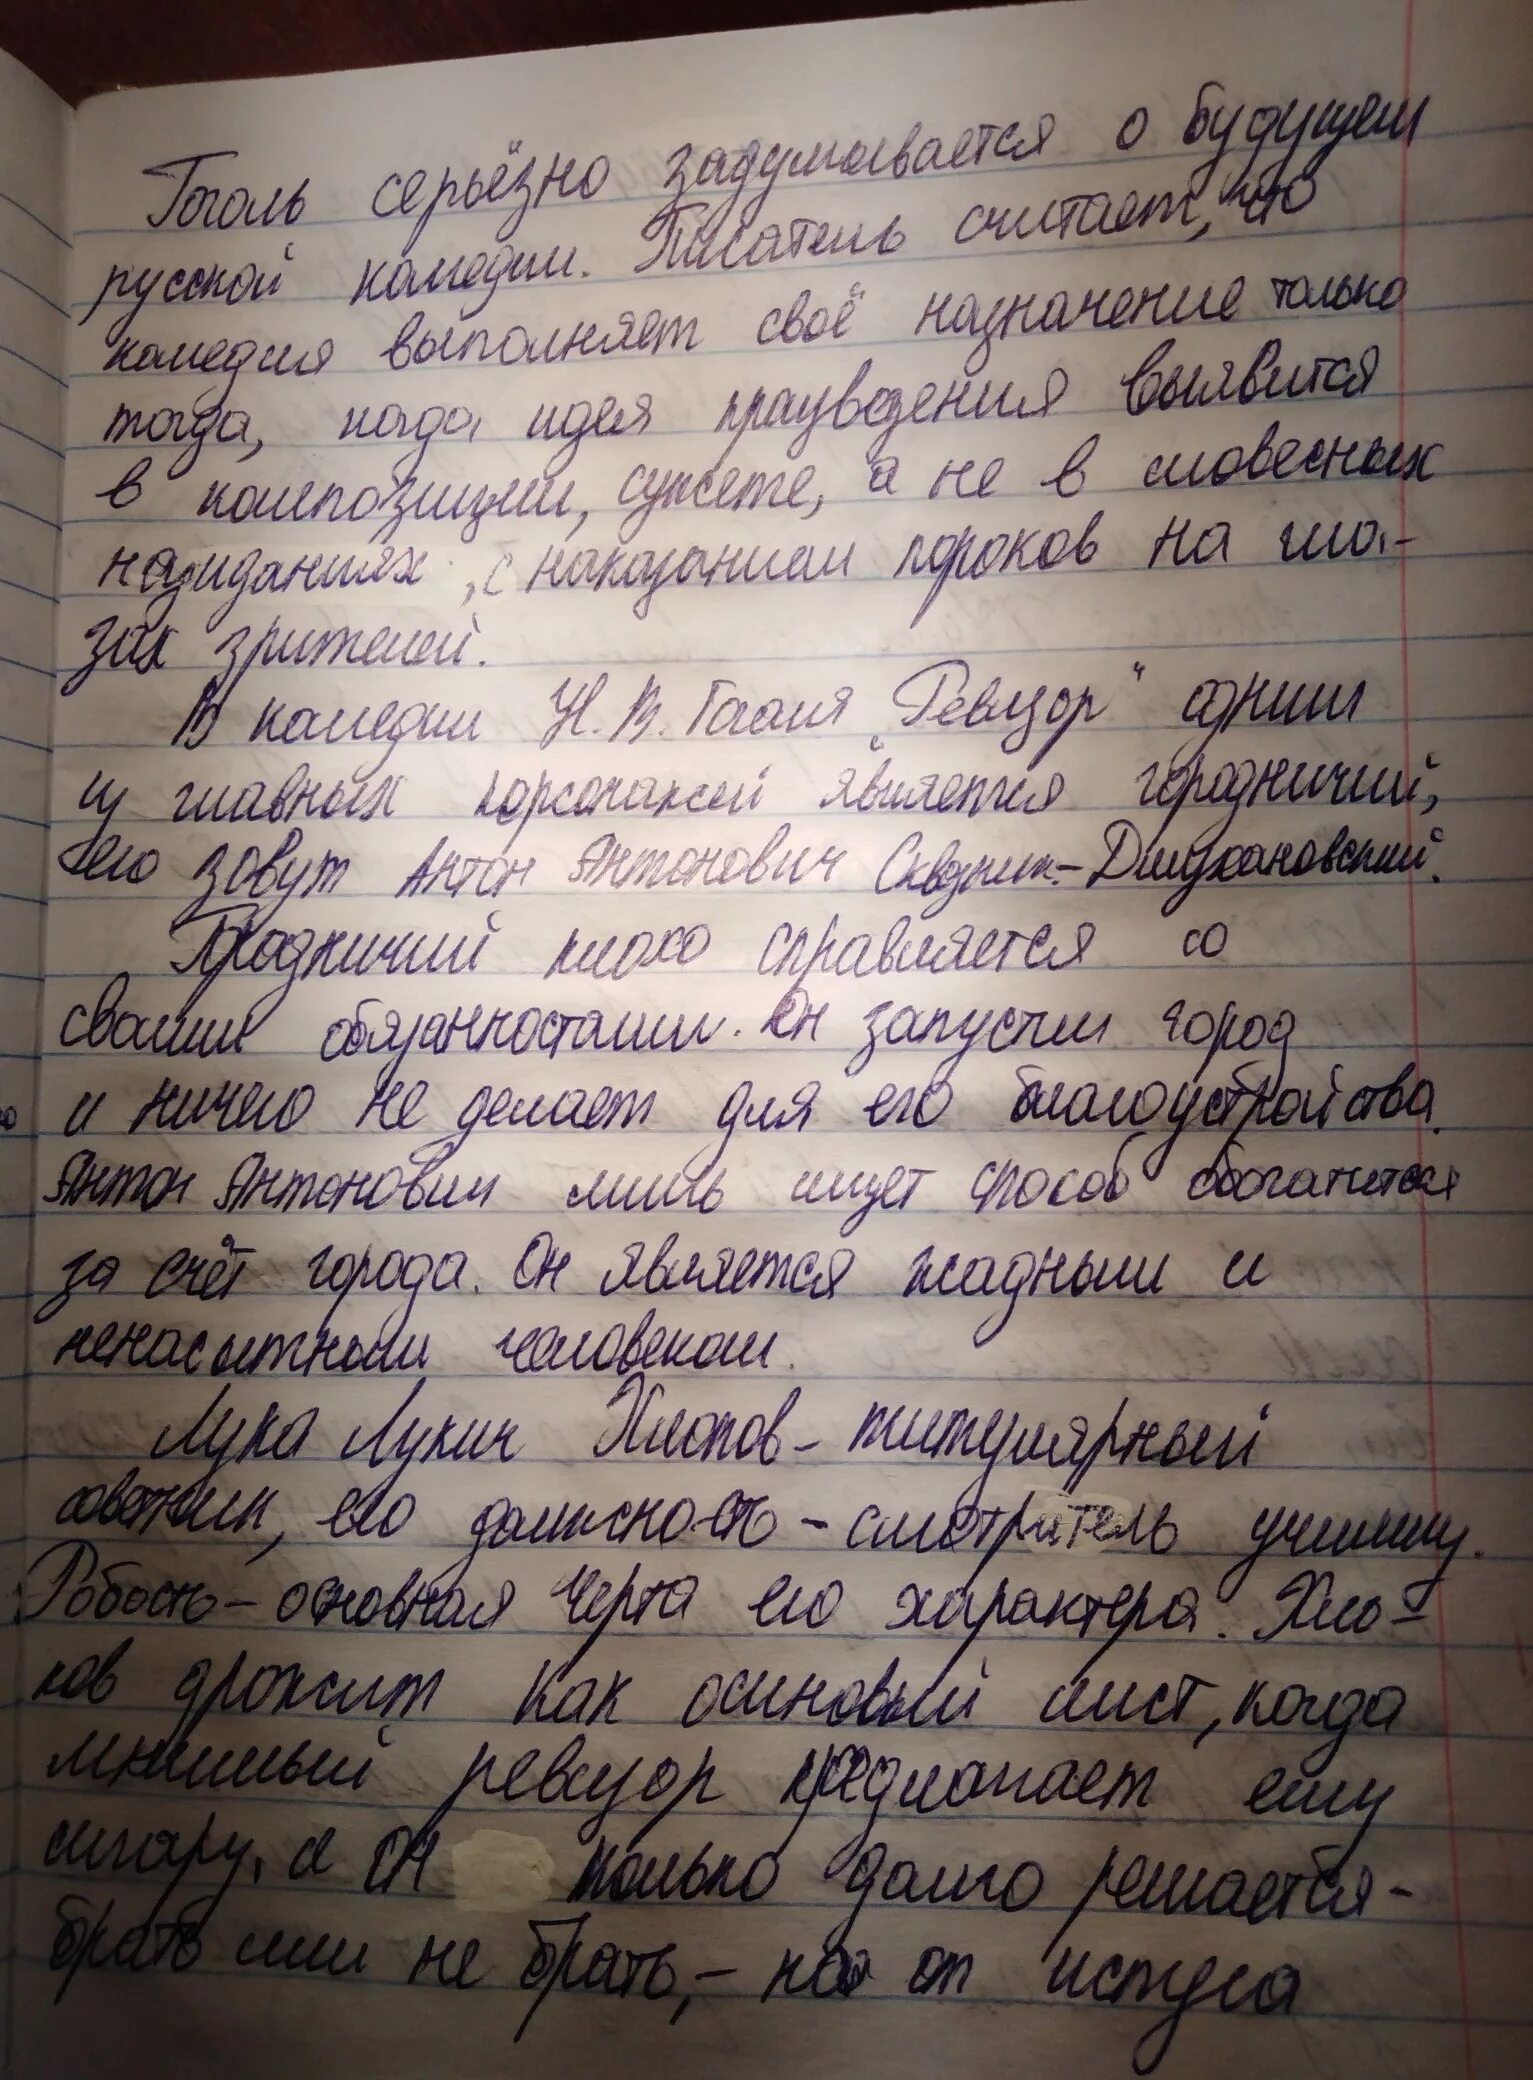 Гоголь серьёзно задумывается о будущем
русской комедии. Писатель считает, что
комедия выполняет своё назначение только
тогда, когда идея произведения выявится
в композиции, сюжете, а не в словесных
назиданиях, с наказанием пороков на гла-
зах зрителей.
В комедии Н. В. Гоголя „Ревизор" одним
из главных персонажей является городничий,
его зовут Антон Антонович Сквозник-Дмухановский.
Городничий плохо справляется со
своими обязанностями. Он запустил город
и ничего не делает для его благоустройства.
Антон Антонович лишь ищет способ обогатится
за счёт города. Он является жадным и
ненасытным человеком.
Лука Лукич Хлопов - титулярный
советник, его должность - смотритель училищ.
Робость - основная черта его характера. Хло-
пов дрожит как осиновый лист, когда
мнимый ревизор предлагает ему
сигару, а он только долго решается -
брать или не брать, - но от испуга